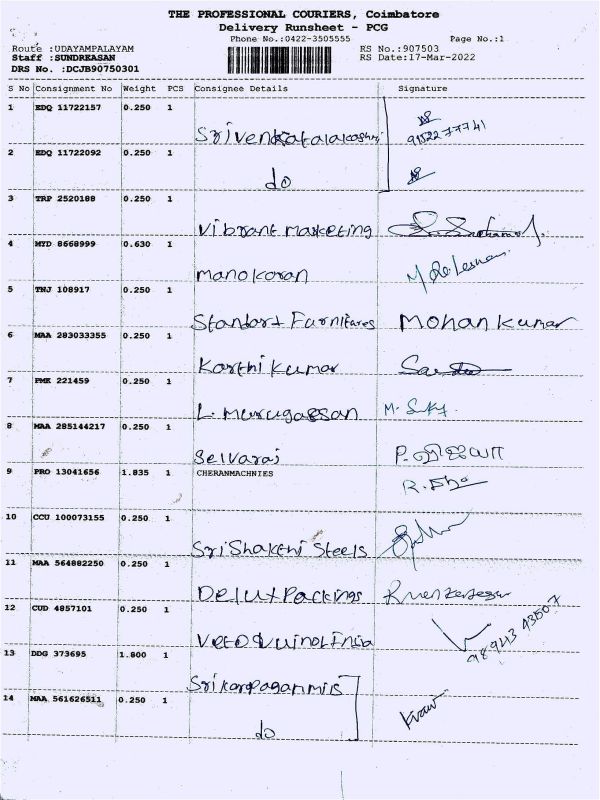 THE PROFESSIONAL COURIERS, Coimbatore
Delivery Runsheet - PCG
Phone No.:0422-3505555
Page No.:1
Route :UDAYAMPALAYAM
RS No.:907503
Staff :SUNDREASAN
RS Date:17-Mar-2022
DRS No. :DCJB90750301
S No Consignment No Weight PCS Consignee Details Signature
1 EDQ 11722157 0.250 1
2 EDQ 11722092 0.250 1
do
3 TRP 2520188 0.250 1
Vibrant marketing
4 MYD 8668999 0.630 1
manokaran
5 TNJ 108917 0.250 1
Standard Furnitures Mohan Kumar
6 MAA 283033355 0.250 1
Karthi Kumar
7 PMK 221459 0.250 1
L. murugassan
8 MAA 285144217 0.250 1
Selvaraj
9 PRO 13041656 1.835 1 CHERANMACHNIES
10 CCU 100073155 0.250 1
Sri Shakthi Steels
11 MAA 564882250 0.250 1
Delux Packings
12 CUD 4857101 0.250 1
98943 43507
13 DDG 373695 1.800 1
14 MAA 561626511 0.250 1
do